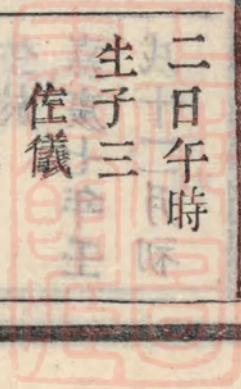 二日午時
生子三
佐儀